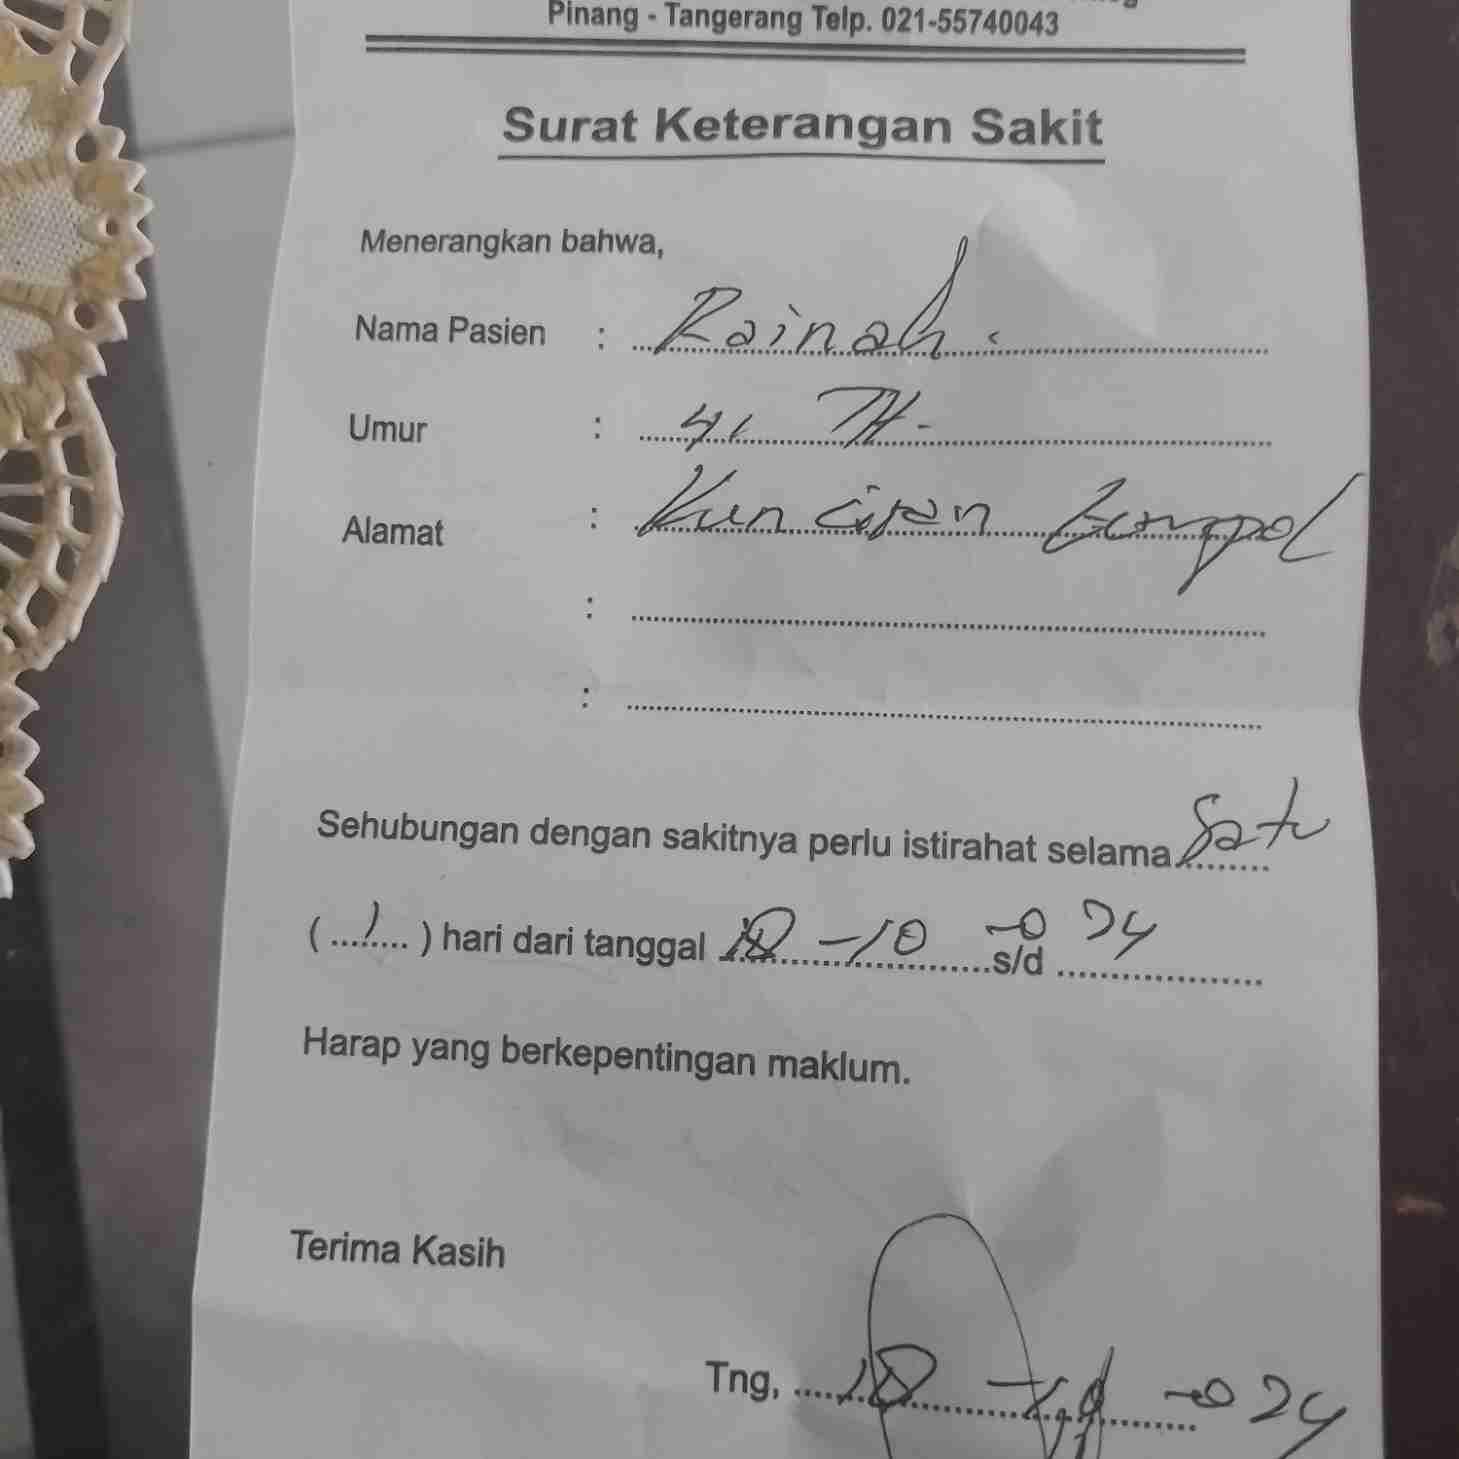 Pinang - Tangerang Telp. 021-55740043
Surat Keterangan Sakit
Menerangkan bahwa,
Nama Pasien : Rainah.
Umur : 41 TH -
Alamat : Kunciran
:
:
Sehubungan dengan sakitnya perlu istirahat selama Satu
( 1 ) hari dari tanggal 18 - 10 s/d 24
Harap yang berkepentingan maklum.
Terima Kasih
Tng, 18 24